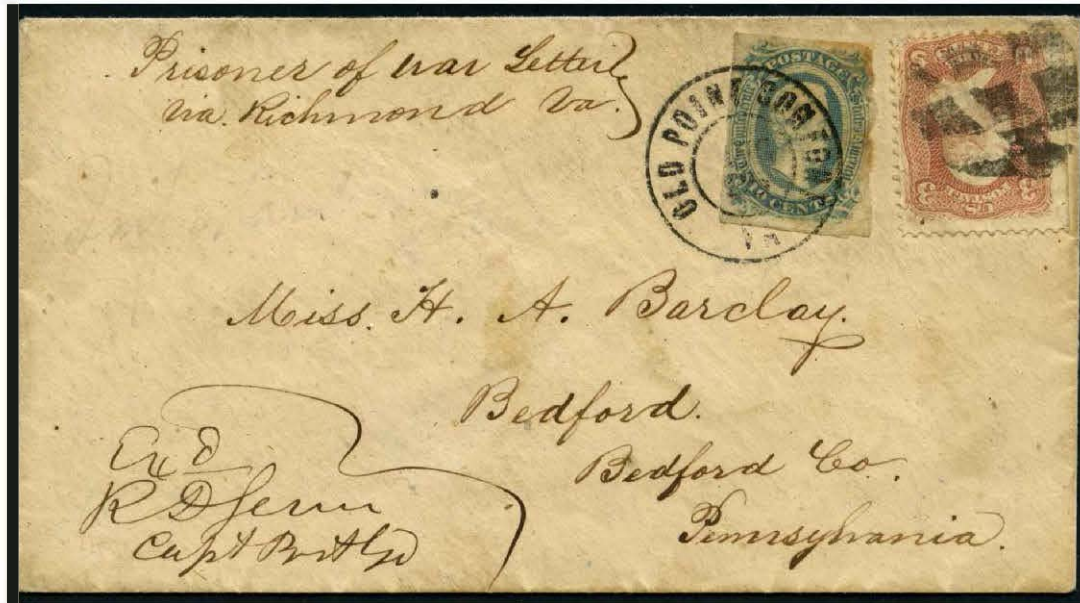 Prisoner of War Letter
via. Richmond Va.
OLD POINT COMFORT
VA
POSTAGE
TEN CENTS
U S
Miss. H. A. Barclay.
Bedford.
Bedford Co.
Pennsylvania.
Exd
R D
Capt